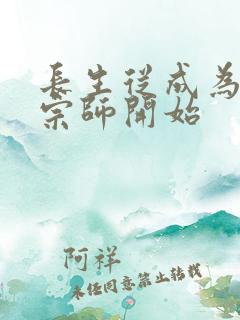 長生從成為
宗師開始
阿祥
未經同意禁止轉載